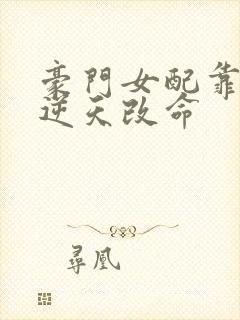 豪門女配靠
逆天改命
尋凰